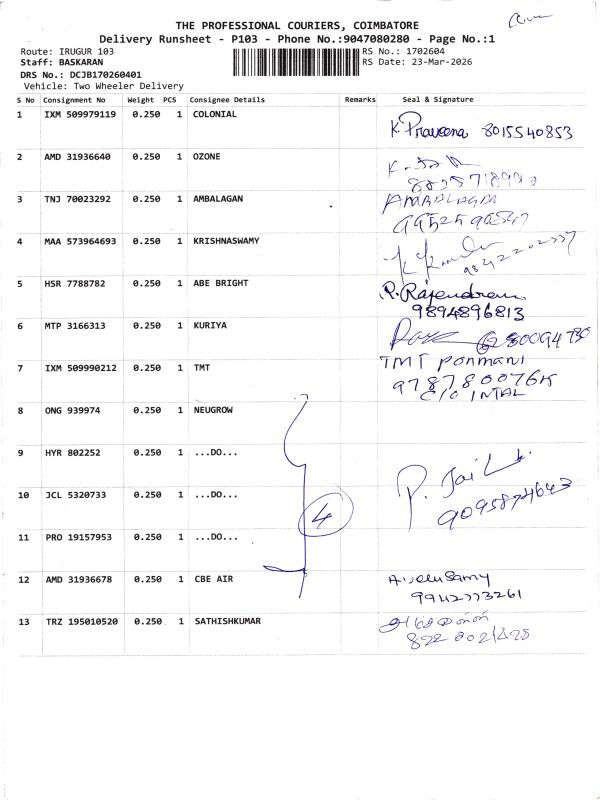 THE PROFESSIONAL COURIERS, COIMBATORE
Delivery Runsheet - P103 - Phone No.:9047080280 - Page No.:1
Route: IRUGUR 103
RS No.: 1702604
Staff: BASKARAN
RS Date: 23-Mar-2026
DRS No.: DCJB170260401
Vehicle: Two Wheeler Delivery
S No Consignment No Weight PCS Consignee Details Remarks Seal & Signature
1 IXM 509979119 0.250 1 COLONIAL
K. Praveena 8015540853
2 AMD 31936640 0.250 1 OZONE
3 TNJ 70023292 0.250 1 AMBALAGAN
AMBALAGAN
4 MAA 573964693 0.250 1 KRISHNASWAMY
5 HSR 7788782 0.250 1 ABE BRIGHT
R. Rajendran
9894896813
6 MTP 3166313 0.250 1 KURIYA
7 IXM 509990212 0.250 1 TMT
TMT Ponmani
C/O INTAL
8 ONG 939974 0.250 1 NEUGROW
9 HYR 802252 0.250 1 ...DO...
P. Jai
9095874643
10 JCL 5320733 0.250 1 ...DO...
4
11 PRO 19157953 0.250 1 ...DO...
12 AMD 31936678 0.250 1 CBE AIR
9942773261
13 TRZ 195010520 0.250 1 SATHISHKUMAR